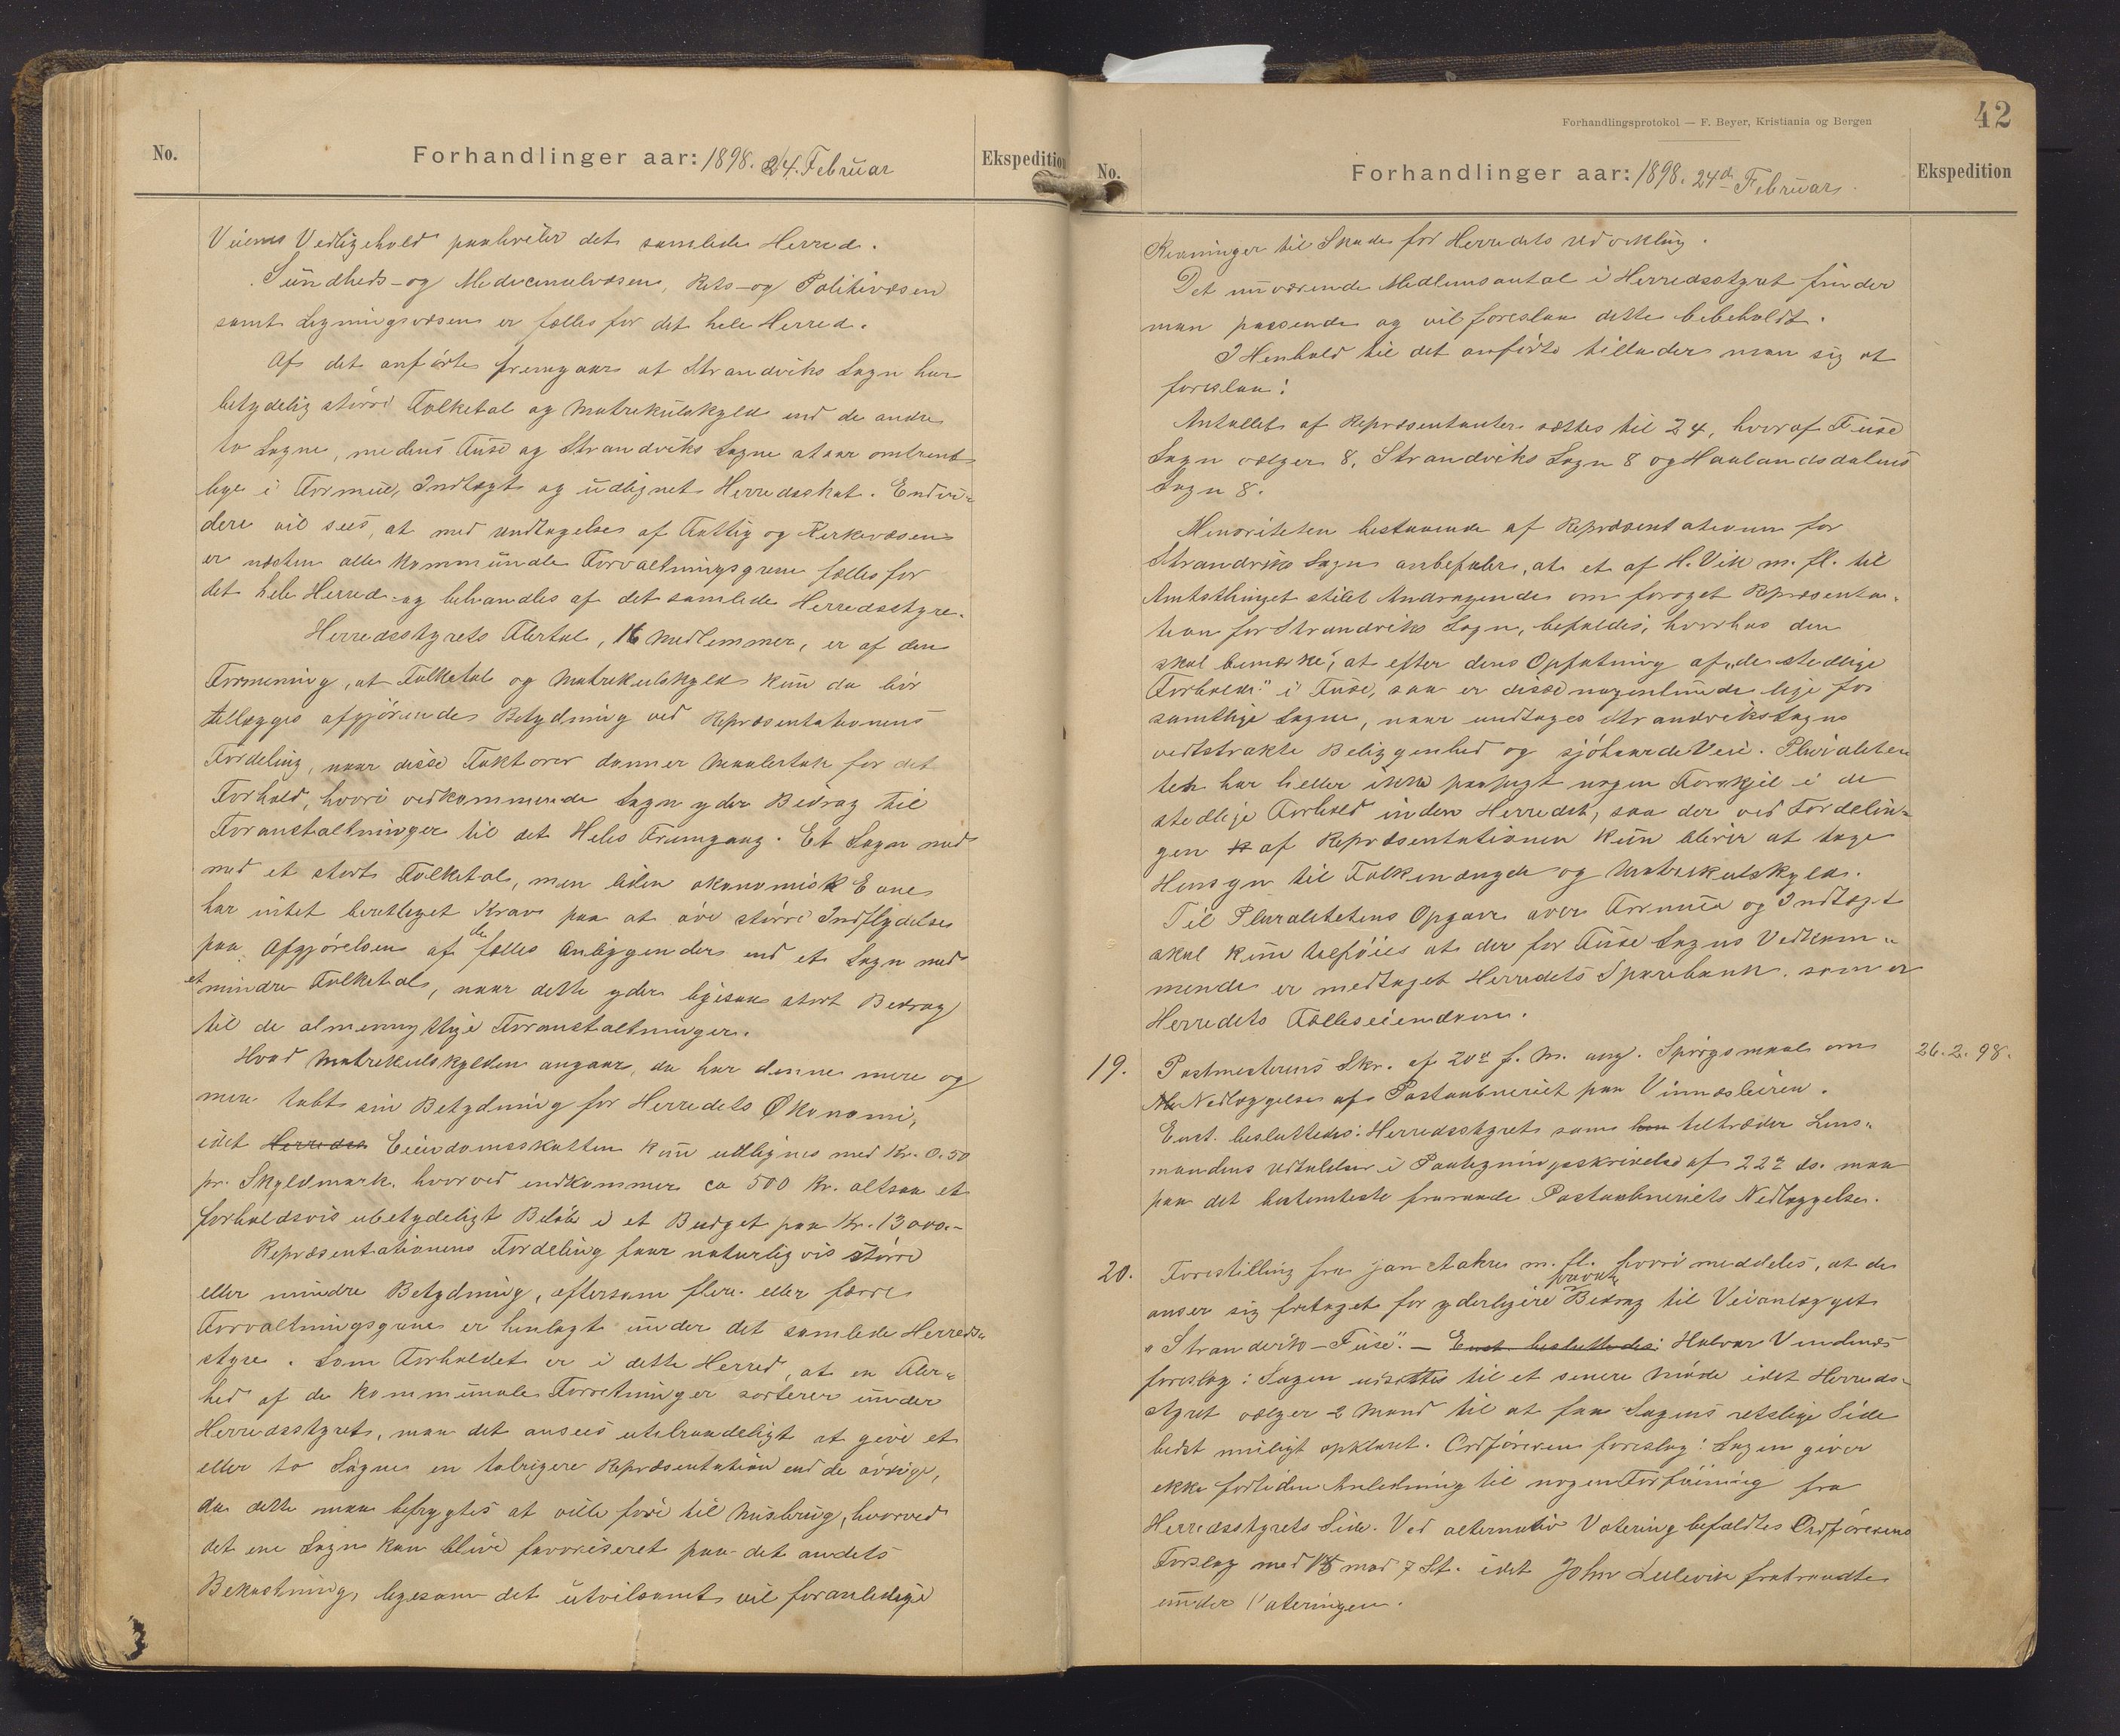 No.
Forhandlinger aar: 1898. 24. Februar
Ekspedition
Veiens Vedligehold paahviler det samlede Herred.
Sundheds- og Medicinalvæsen, Rets- og Politivæsen
samt Ligningsvæsen er fælles for det hele Herred.
Af det anførte fremgaar at Strandviks Sogn har
betydelig større Folketal og Matrikulskyld end de andre
to Sogne, medens Fuse og Strandviks Sogne staar omtrent
lige i Formue, Indtægt og udlignet Herredsskat. Endvi-
dere vil sees, at med undtagelse af Fattig og Kirkevæsen
er næsten alle kommunale Forvaltningsgrene fælles for
det hele Herred og behandles af det samlede Herredsstyre.
Herredsstyrets Flertal, 16 Medlemmer, er af den
Formening, at Folketal og Matrikulskyld kun da bør
tillægges afgjørende Betydning ved Repræsentationens
Fordeling, naar disse Faktorer danner Maalestok for det
Forhold, hvori vedkommende Sogn yder Bidrag til
Foranstaltninger til det Heles Fremgang. Et Sogn med
med et stort Folketal, men liden økonomisk Evne
har intet berettiget Krav paa at øve større Indflydelse
paa Afgjørelsen af de fælles Anliggender end et Sogn med
et mindre Folketal, naar dette yder ligesaa stort Bidrag
til de almennyttige Foranstaltninger.
Hvad Matrikulskylden angaar, da har denne mere og
mere tabt sin Betydning for Herredets Økonomi,
idet Herredes Eiendomsskatten kun udlignes med Kr. 0.50
pr. Skyldmark, hvorved indkommer ca 500 Kr. altsaa et
forholdsvis ubetydeligt Beløb i et Budget paa Kr. 13000.-
Repræsentationens Fordeling faar naturligvis større
eller mindre Betydning, eftersom flere eller færre
Forvaltningsgrene er henlagt under det samlede Herreds-
styre. Som Forholdet er i dette Herred, at en Fler-
hed af de kommunale Forretninger sorterer under
Herredsstyret, maa det ansees utilraadeligt at give et
eller to Sogne en talrigere Repræsentation end de øvrige,
da dette maa befrygtes at ville føre til Misbrug, hvorved
det ene Sogn kan blive favoriseret paa det andets
Bekostning, ligesom det utvilsomt vil foranledige
3
Forhandlingsprotokol — F. Beyer, Kristiania og Bergen
42
No.
Forhandlinger aar: 1898. 24de Februar.
Ekspedition
Rivninger til Skade for Herredets Udvikling.
Det nuværende Medlemsantal i Herredsstyret finder
man passende og vil foreslaa dette bibeholdt.
I Henhold til det anførte tillader man sig at
foreslaa:
Antallet af Repræsentanter sættes til 24, hvoraf Fuse
Sogn vælger 8, Strandviks Sogn 8 og Haalandsdalens
Sogn 8.
Minoriteten bestaaende af Repræsentationen for
Strandviks Sogn anbefaler, at et af H. Vik m. fl. til
Amtsthinget stilet Andragende om forøget Repræsenta-
tion for Strandviks Sogn, befaldes, hvorhos den
skal bemærke, at efter dens Opfatning af „de stedlige
Forholde" i Fuse, saa er disse nogenlunde lige for
samtlige Sogne, naar undtages Strandviks Sogns
vidtstrakte Beliggenhed og sjøhaarde Veie. Pluralite
ten har heller ikke paapegt nogen Forskjel i de
stedlige Forhold inden Herredet, saa der ved Fordelin-
gen af Repræsentationen kun bliver at tage
Hensyn til Folkemængde og Matrikulskyld.
Til Pluralitetens Opgave over Formue og Indtægt
skal kun tilføies at der for Fuse Sogns Vedkom-
mende er medtaget Herredets Sparebank, som er
Herredets Fælleseiendom.
19. Postmesterens Skr. af 20de f. M. ang. Spørgsmaal om 26.2.98.
Nedlæggelse af Postaabneriet paa Vinnesleiren.
Enst. besluttedes: Herredsstyret som tiltræder Lens-
mandens Udtalelser i Paategningsskrivelse af 22de ds. maa
paa det bestemteste fraraade Postaabneriets Nedlæggelse.
20. Forestilling fra Jan Aakre m. fl. hvori meddeles, at de
anser sig fritaget for yderligere privat Bidrag til Veianlægget
„Strandvik – Fuse". – Enst. besluttedes: Halvor Vindenes
foreslog: Sagen udsættes til et senere Møde idet Herreds-
styret vælger 2 Mand til at faa Sagens retslige Side
bedst muligt opklaret. Ordføreren foreslog: Sagen giver
ikke fortiden Anledning til nogen Forføining fra
Herredsstyrets Side. Ved alternativ Votering befaldtes Ordførerens
Forslag med 15 mod 7 St. idet John Lillevik fratraadte
under Voteringen.